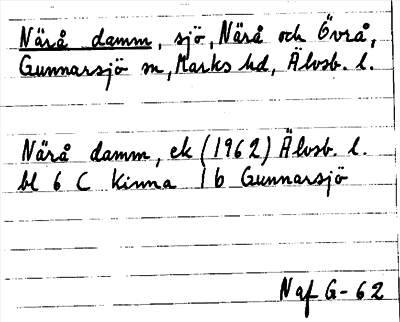 Närå damm, sjö, Närå och Övrå,
Gunnarsjö sn, Marks hd, Älvsb. l.
Närå damm, ek (1962) Älvsb. l.
bl 6 C Kinna 1 b Gunnarsjö
Naf G-62